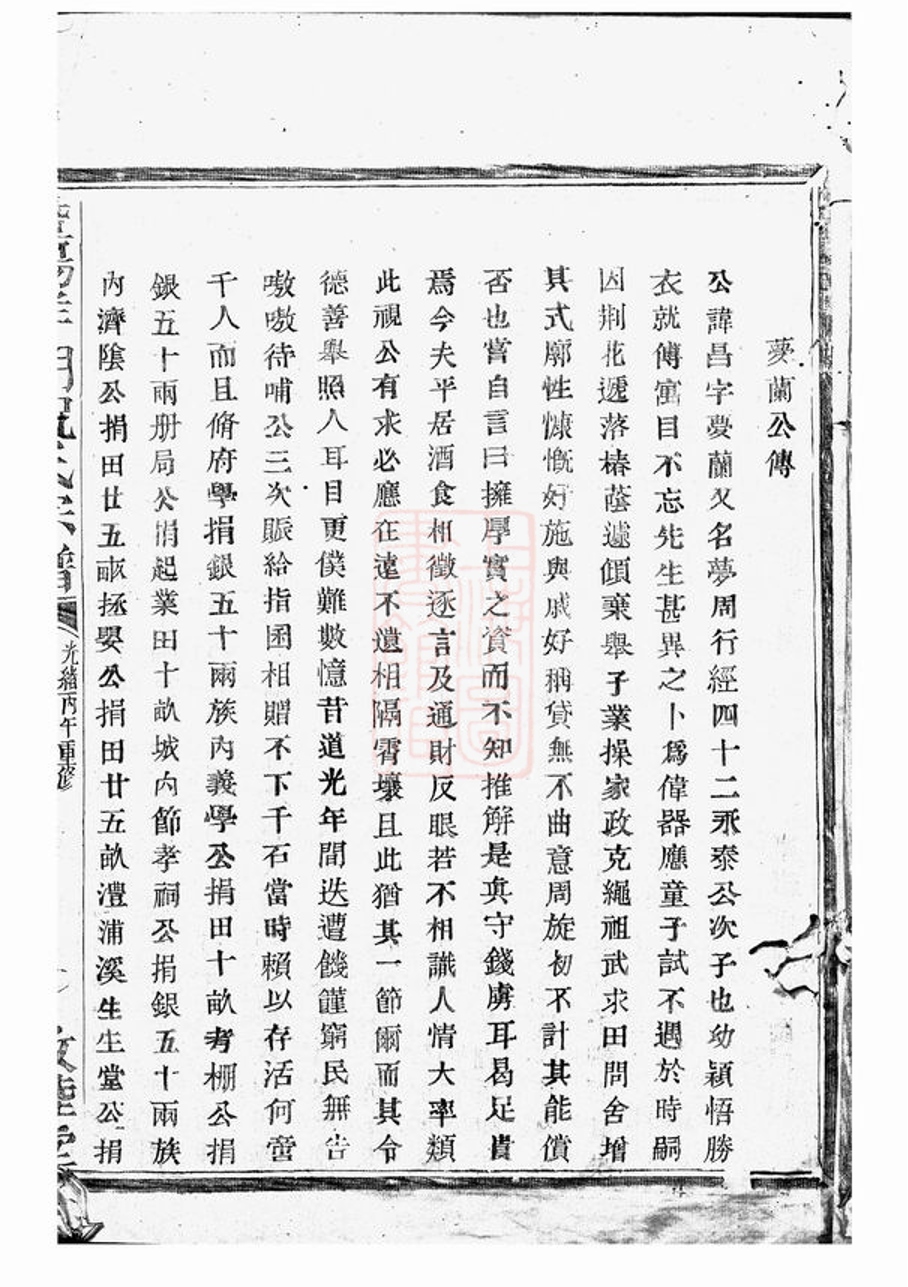 夢蘭公傳
公諱昌字夢蘭又名夢周行經四十二永泰公次子也幼穎悟勝
衣就傅寓目不忘先生甚異之卜爲偉器應童子試不遇於時嗣
因荆花遞落椿蔭遽傾棄舉子業操家政克繩祖武求田問舍增
其式廓性慷慨好施與戚好稱貸無不曲意周旋初不計其能償
否也嘗自言曰擁厚實之資而不知推解是眞守錢虜耳曷足貴
焉今夫平居酒食相徵逐言及通財反眼若不相識人情大率類
此視公有求必應在遠不遺相隔霄壤且此猶其一節爾而其令
德善舉照人耳目更僕難數憶昔道光年間迭遭饑饉窮民無告
嗷嗷待哺公三次賑給指囷相贈不下千石當時賴以存活何啻
千人而且脩府學捐銀五十兩族內義學公捐田十畝考棚公捐
銀五十兩册局公捐起業田十畝城內節孝祠公捐銀五十兩族
內濟陰公捐田廿五畝拯嬰公捐田廿五畝澧浦溪生生堂公捐
光緒丙午重修